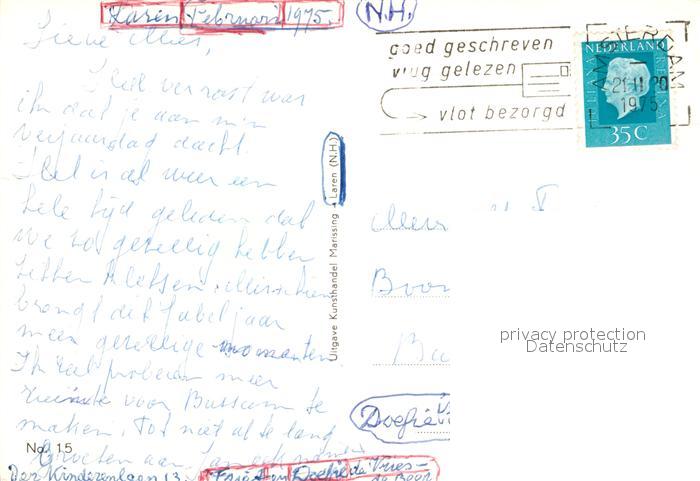 Laren Februari 1975. (N.H.)
Lieve Mies,
Heel verrast was
ik dat je aan m'n
verjaardag dacht.
Het is al weer een
hele tijd geleden dat
we zo gezellig hebben
zitten kletsen. Misschien
brengt dit jubeljaar
meer gezellige momenten
Ik zal proberen meer
ruimte voor Bussum te
maken. Tot niet al te lang
Groeten aan Jan ook
No. 15
Der Kinderenlaan 13. Frie en Doefie de Vries-
de Boer
Uitgave Kunsthandel Marissing - Laren (N.H.)
goed geschreven
vlug gelezen
vlot bezorgd
AMSTERDAM
21 II 20
1975
NEDERLAND
JULIANA REGINA
35 C
Boo
Bu
Doefie
privacy protection
Datenschutz